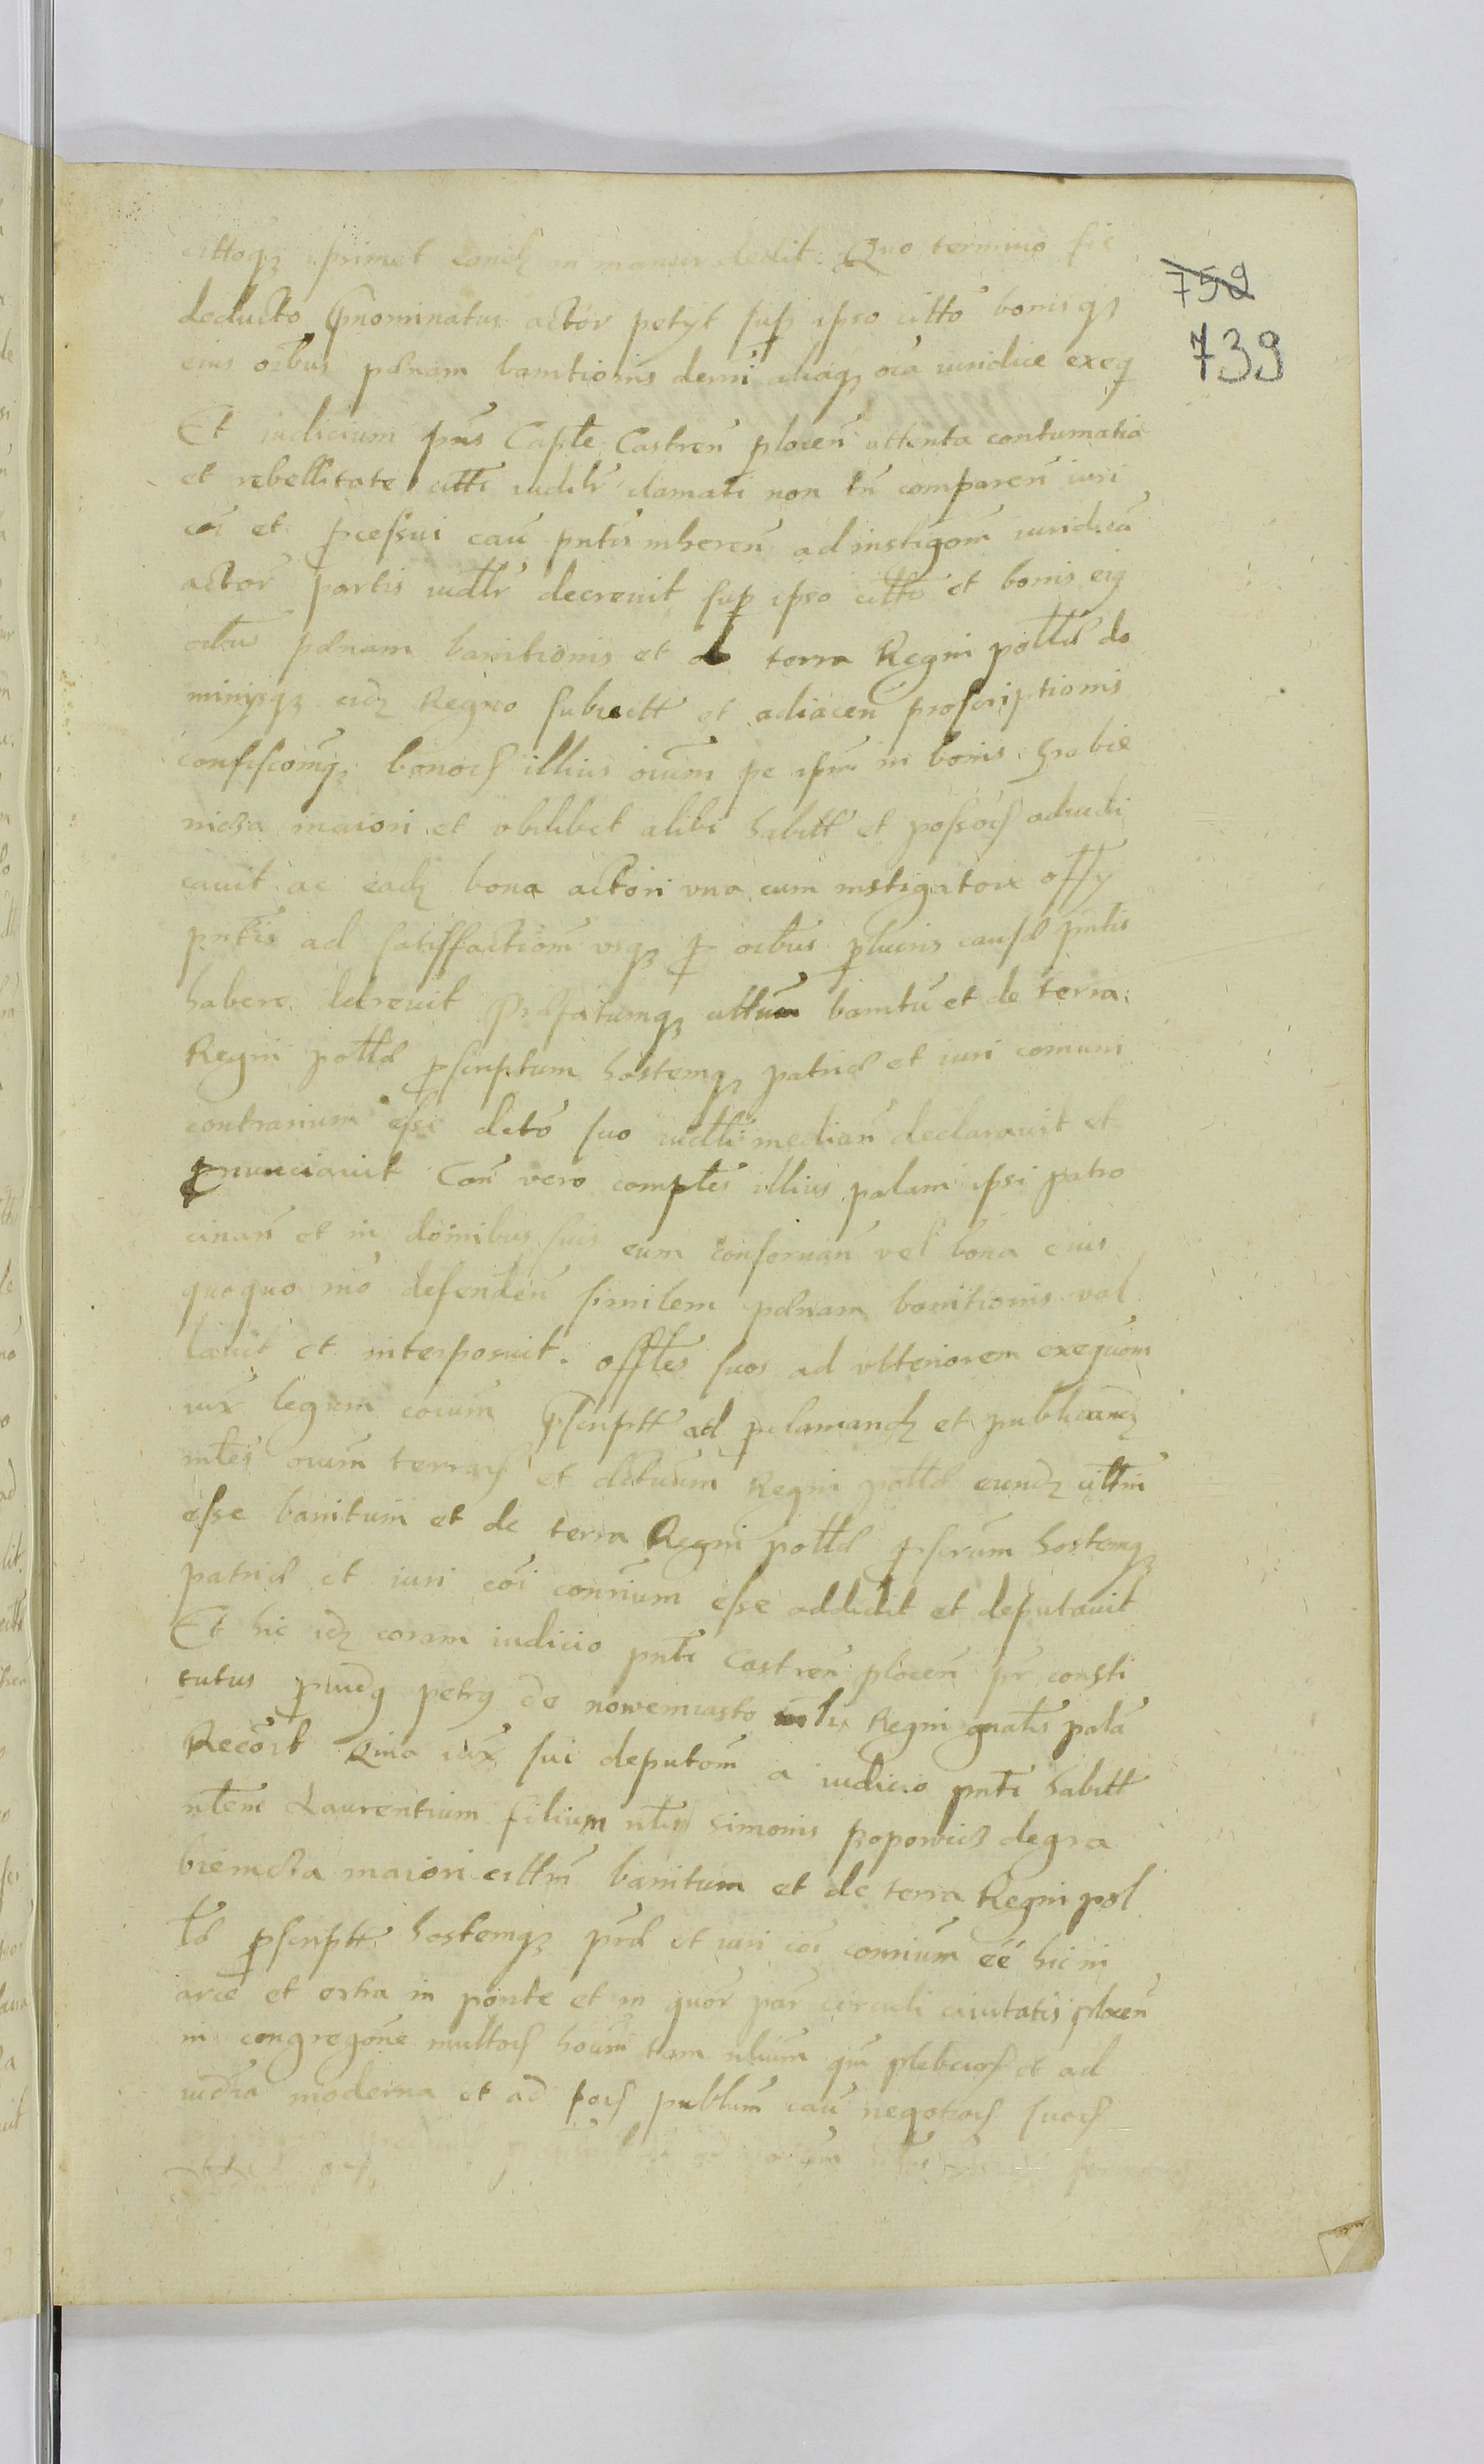 cittoq3 primet eand3 in manus dedit. Quo termino sic
759
739
deducto p̃nominatus actor petyt sup ipso citto bonisq3
eius oĩbus pænam banitionis derni aliaq3 oĩa iuridice exeq
Et iudicium p̃ns Caple Castreñ ploceñ attenta contumatia
et rebellitate citti iudiltr clamati non tñ compareñ iuri
cõi et p̃cessui cau pñtis inhereñ ad instigom̃ iuridicã
actor partis iudltr decrevit sup ipso citto et bonis eiq
oĩbus pænam banitionis et de terra Regni polliæ do
minysq3 eid3 Regno subiectt et adiaceñ proscriptionis
confiscom̃q3 bonor illius oium̃ pe ipm̃ in bonis Grabie
nicza maiori et vbilibet alibi habitt et possor adiudi
cavit ac ead3 bona actori vna cum instigatore offy
pñtis ad satisfactiom̃ vsq3 p oĩbus p lucris causæ pñtis
habere decrevit Præfatumq3 cittum banitũ et de terra
Regni polliæ p̃scriptum hostemq3 patriæ et iuri comuni
contrarium esse dcto suo iudlli mediañ declaravit et
p̃nunciavit Con vero comptes illius palam ipsi patro
cinañ et in domibus suis eum conservañ vel bona eius
quoquo mõ defendeñ similem pænam banitionis val
lavit et interposuit. offtes suos ad vlteriorem exequom̃
iux legum eorum p̃scriptt ad p̃clamand3 et publicand3
oium̃ terrar et Regni polliæ eund3 cittm̃
esse banitum et de terra Regni polliæ p̃scrum̃ hostemq3
patriæ et iuri cõi conrium̃ esse addidit et deputavit
Et hic id3 coram iudicio pñti Castreñ ploceñ pr consti
tutus p̃vidq petrq de nowemiasto Regni gnalis palã
Recõit Quia iux sui deputom̃ a iudicio pñti habitt
nlem Laurentium filium nlis Simonis popowicz degra
biemcza maiori cittm̃ banitum et de terra Regni pol
liæ p̃scriptt hostemq3 p̃riæ et iuri cõi conrium̃ eẽ hic in
arce et extra in ponte et in quor par circuli civitatis ploceñ
in congregõne multor hoium̃ tam nlium̃ qm̃ plebeior et ad
iudcia moderna et ad for publicm̃ cau negotior suor